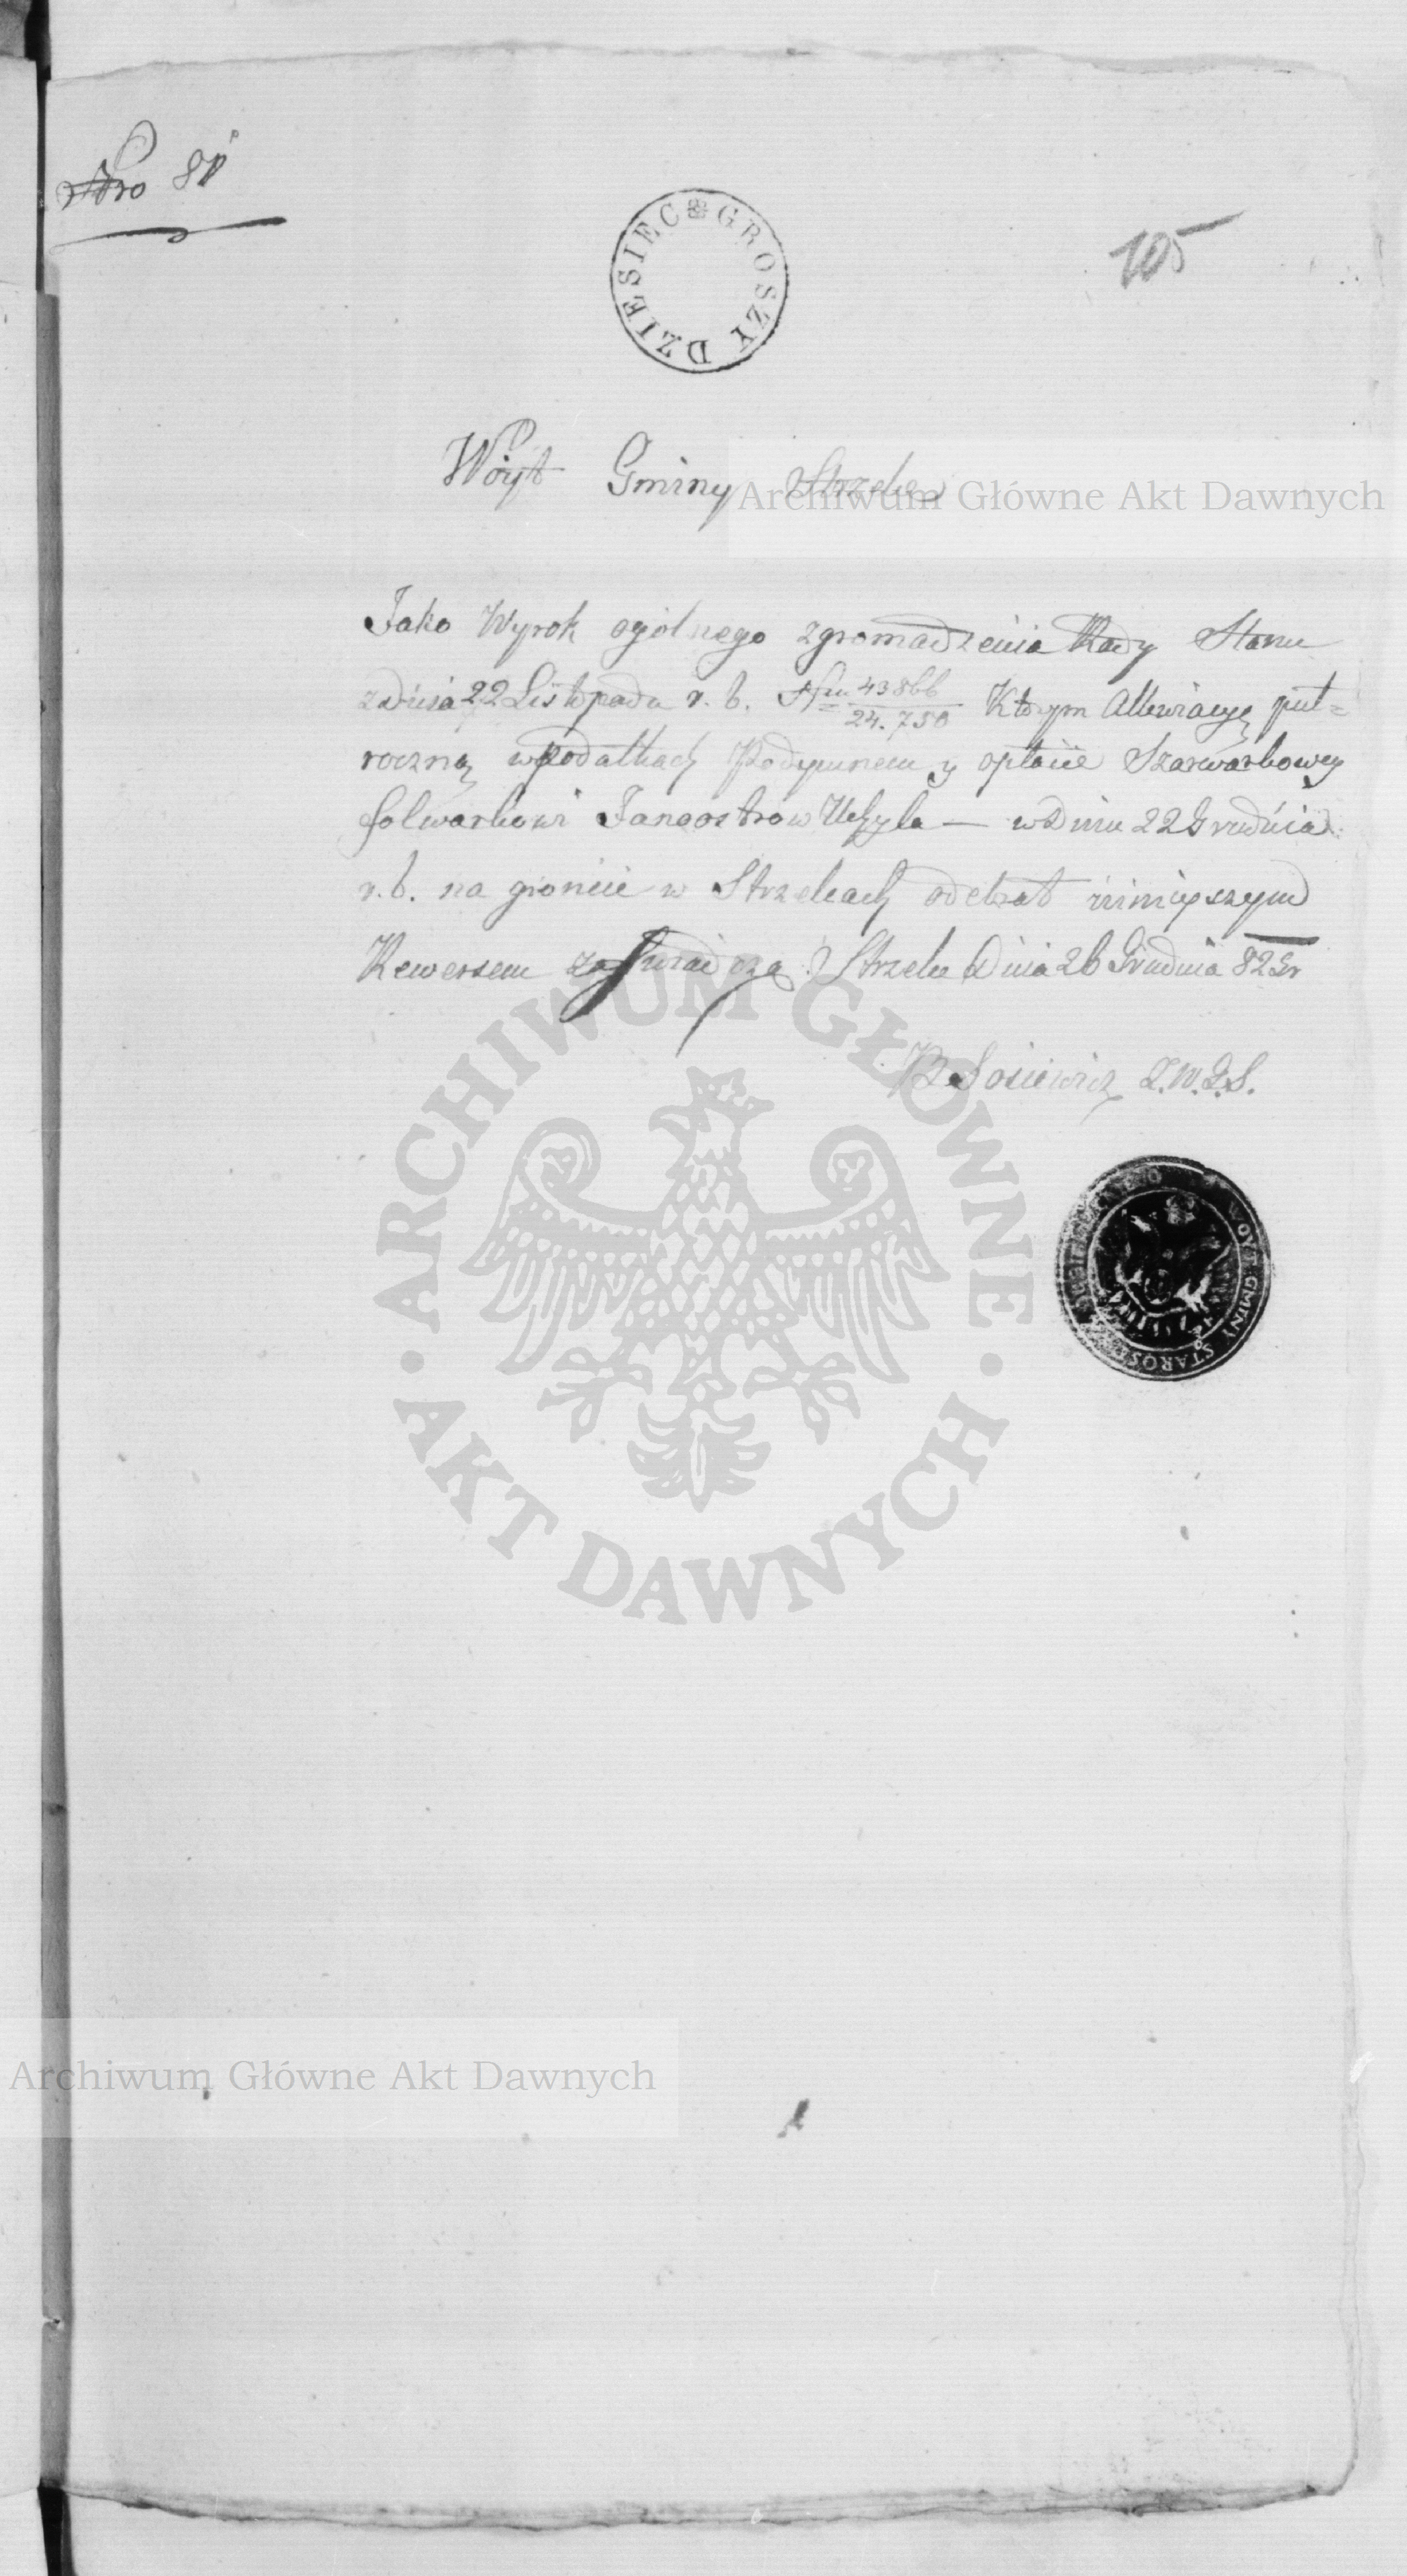 Nro 81
DZIESIEC GROSZY
105
Woyt Gminy Strzelce
Archiwum Główne Akt Dawnych
Jako Wyrok ogólnego zgromadzenia Rady Stanu
z dnia 22 Listopada r. b. 43866
24.750 Ktorym Allewiacyę puł=
roczną w podatkach Podymnem y opłacie Szarwarkowey
folwarkowi Janoostrow Uchyla — w Dniu 22 Grudnia
r. b. na gróncie w Strzelcach odebrał ninieyszym
Rewersem zaswiadcza Strzelce Dnia 26 Grudnia 82
B Sosiewicz Z.W.G.S.
WOYT GMINY STAROS
ARCHIWUM GŁÓWNE
AKT DAWNYCH
Archiwum Główne Akt Dawnych